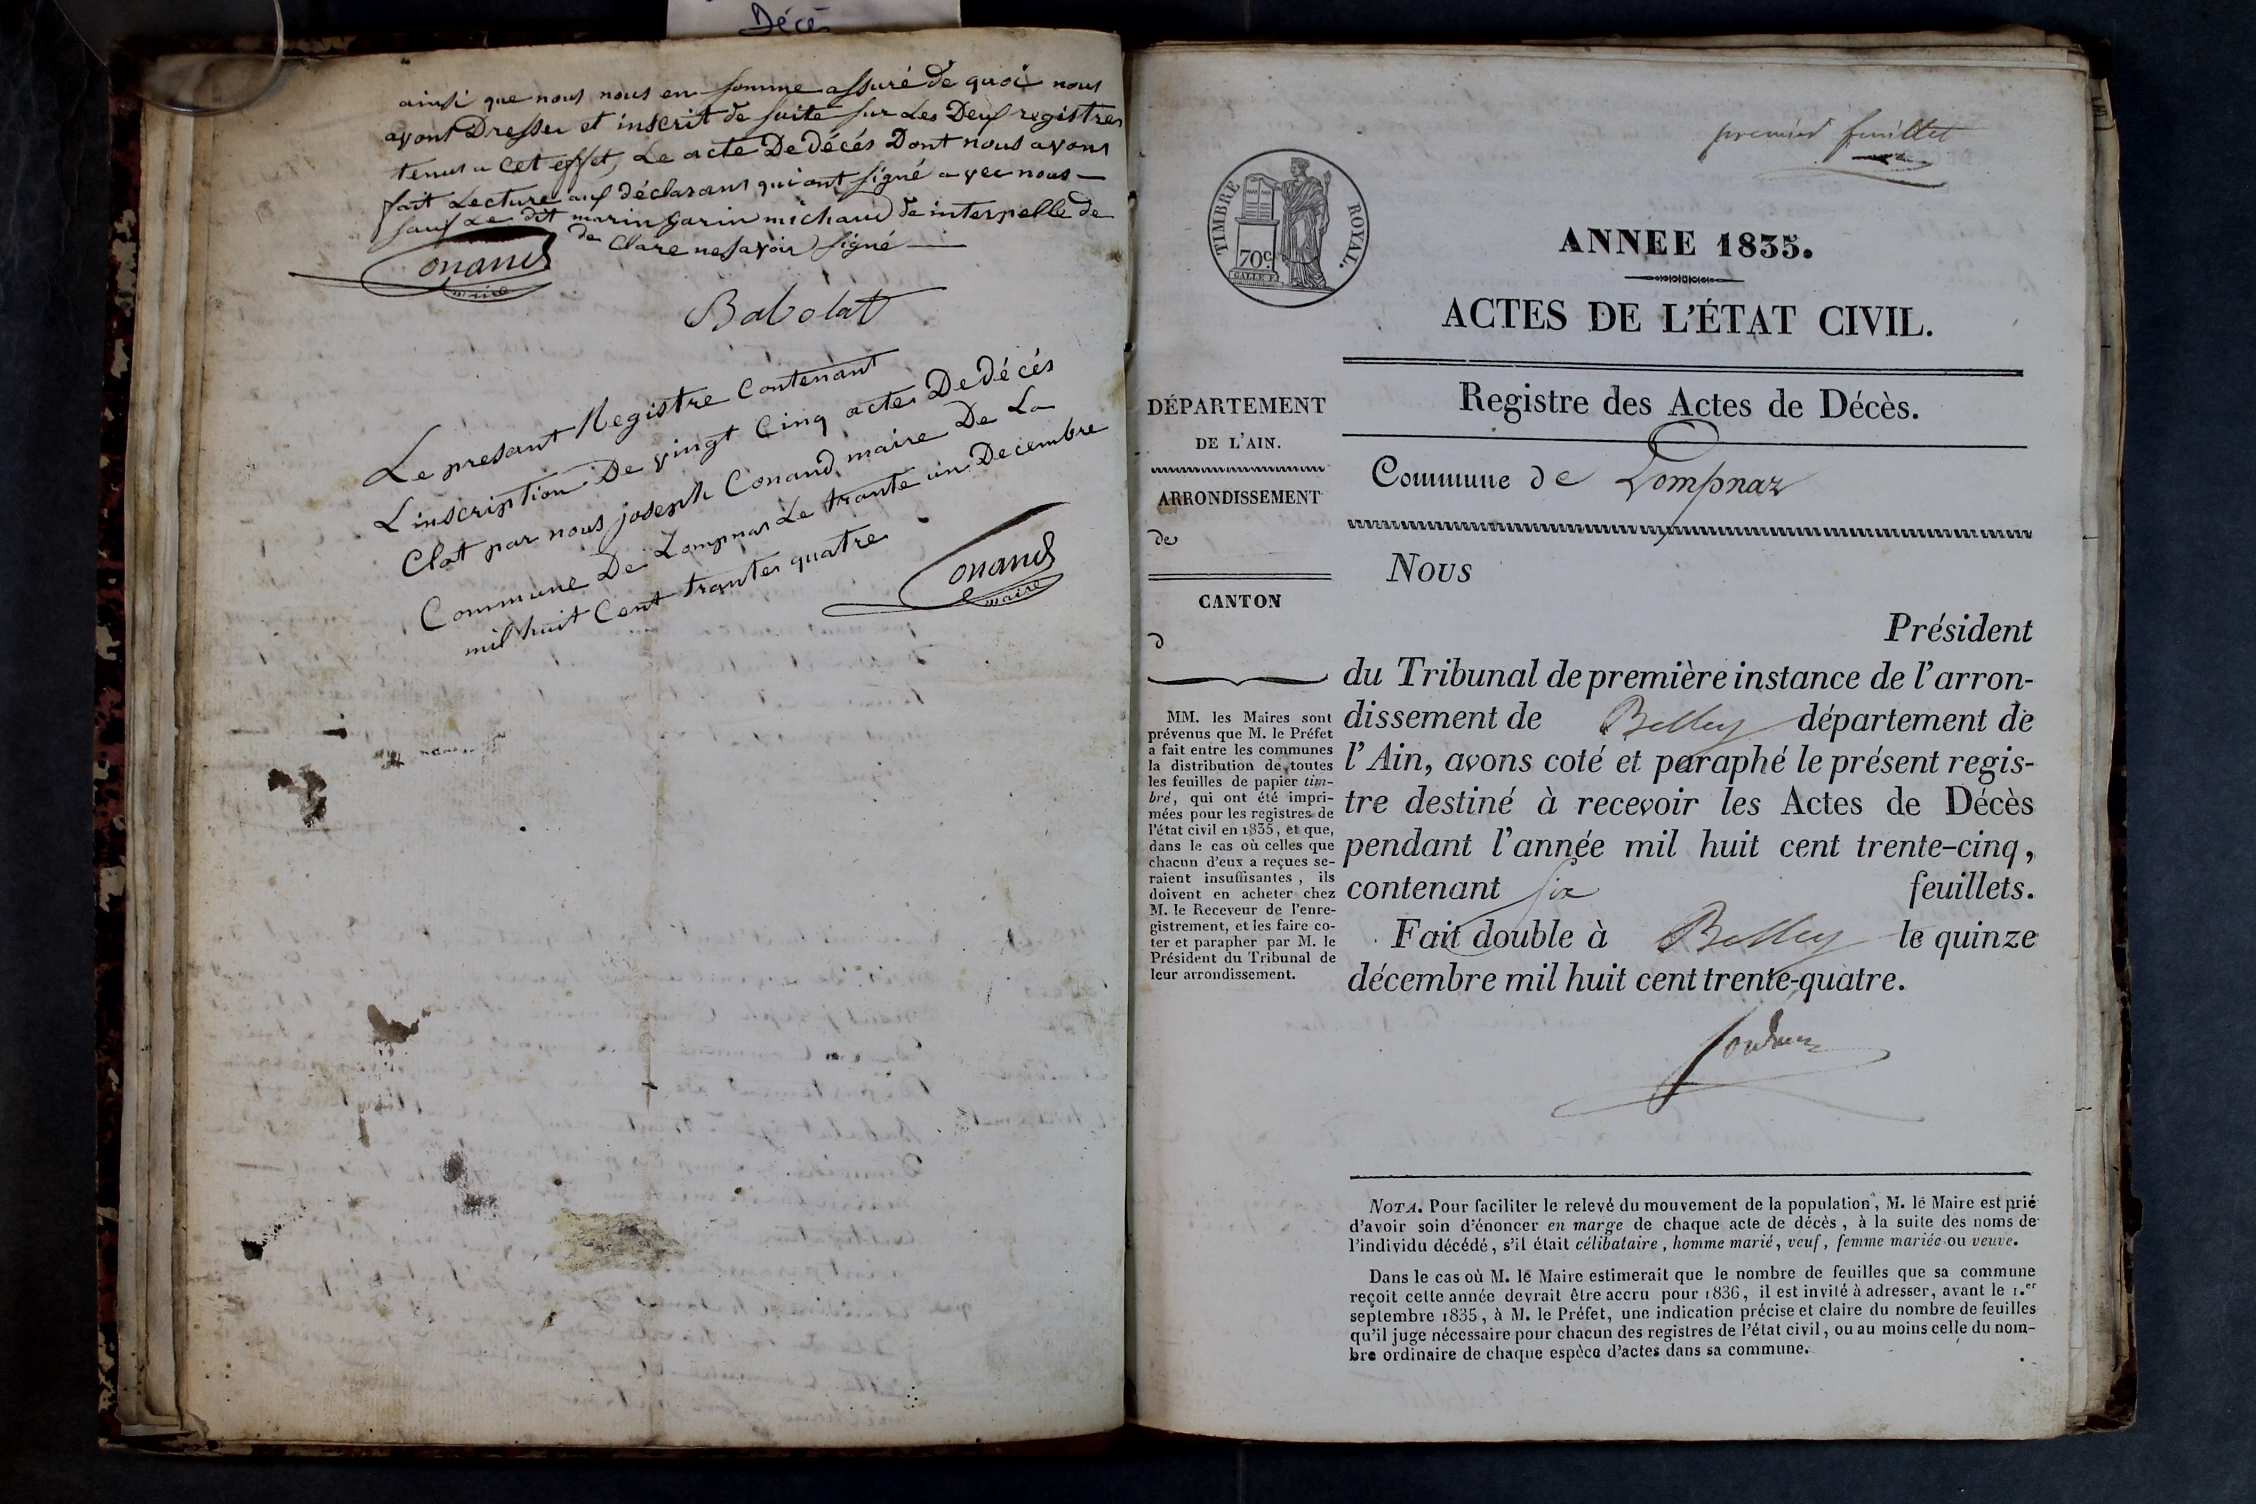 Décès
ainsi que nous nous en somme assuré de quoi nous
avont Dressu et inscrit de suite sur Les Deux registres
tenus a Cet effet, Le acte De décés Dont nous avons
fait Lecture aux déclarans qui ont signé avec nous —
sauf Le dit marin garin michaud de interpelle de
de Clare ne savoir signé —
Conand
maire
Babolat
Le presant Registre Contenant
L'inscription De vingt Cinq actes De décés
Clot par nous joseph Conand maire De La
Commune De Lompnas Le trante un Decembre
mil huit Cent trantes quatre
Conand
maire
premier feuillet
TIMBRE ROYAL.
70c.
ANNEE 1835.
ACTES DE L'ÉTAT CIVIL.
Registre des Actes de Décès.
Commune de Lompnaz
DÉPARTEMENT
DE L'AIN.
ARRONDISSEMENT
de
CANTON
d
MM. les Maires sont
prévenus que M. le Préfet
a fait entre les communes
la distribution de toutes
les feuilles de papier tim-
bré, qui ont été impri-
mées pour les registres de
l'état civil en 1835, et que,
dans le cas où celles que
chacun d'eux a reçues se-
raient insuffisantes, ils
doivent en acheter chez
M. le Receveur de l'enre-
gistrement, et les faire co-
ter et parapher par M. le
Président du Tribunal de
leur arrondissement.
Nous
Président
du Tribunal de première instance de l'arron-
dissement de Belley département de
l'Ain, avons coté et paraphé le présent regis-
tre destiné à recevoir les Actes de Décès
pendant l'année mil huit cent trente-cinq,
contenant six feuillets.
Fait double à Belley le quinze
décembre mil huit cent trente-quatre.
NOTA. Pour faciliter le relevé du mouvement de la population, M. le Maire est prié
d'avoir soin d'énoncer en marge de chaque acte de décès, à la suite des noms de
l'individu décédé, s'il était célibataire, homme marié, veuf, femme mariée ou veuve.
Dans le cas où M. le Maire estimerait que le nombre de feuilles que sa commune
reçoit cette année devrait être accru pour 1836, il est invité à adresser, avant le 1.er
septembre 1835, à M. le Préfet, une indication précise et claire du nombre de feuilles
qu'il juge nécessaire pour chacun des registres de l'état civil, ou au moins celle du nom-
bre ordinaire de chaque espèce d'actes dans sa commune.